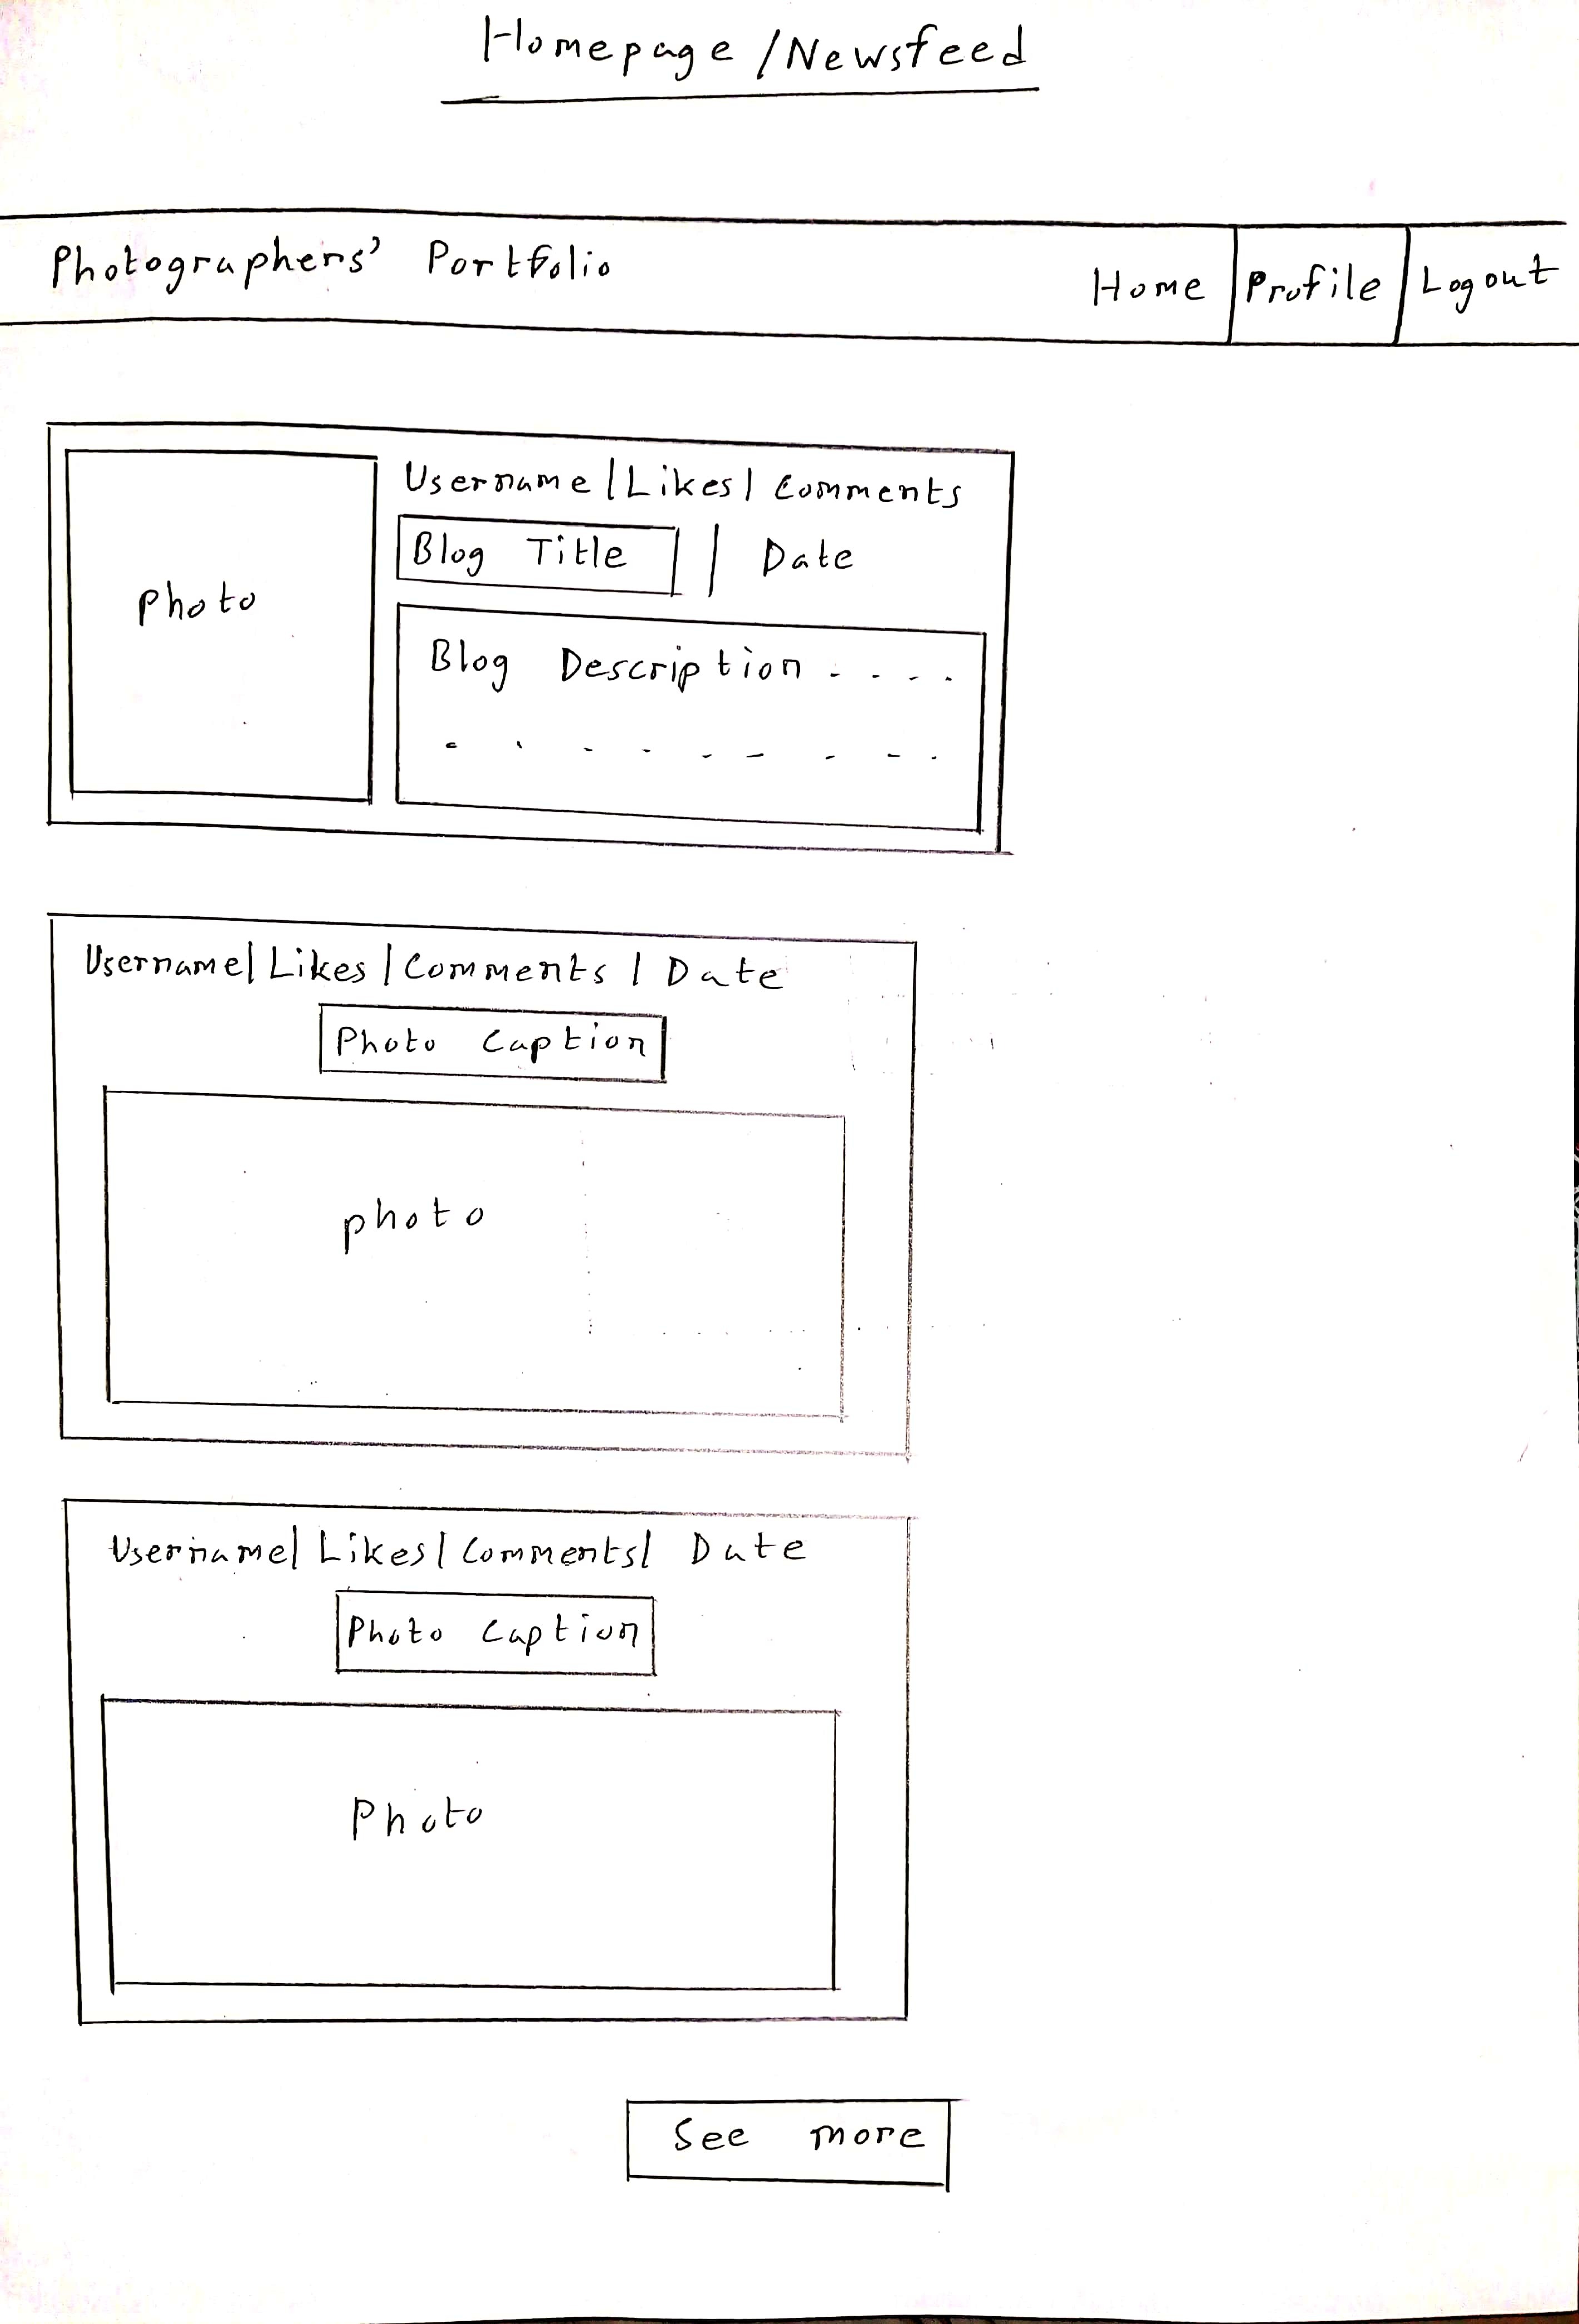 Homepage /Newsfeed
Photographers' Portfolio
Home | Profile | Logout
Username | Likes | Comments
Blog Title | Date
Photo
Blog Description - - - -
- - - - - - - - -
Username | Likes | Comments | Date
Photo Caption
photo
Username | Likes | Comments | Date
Photo Caption
Photo
See more